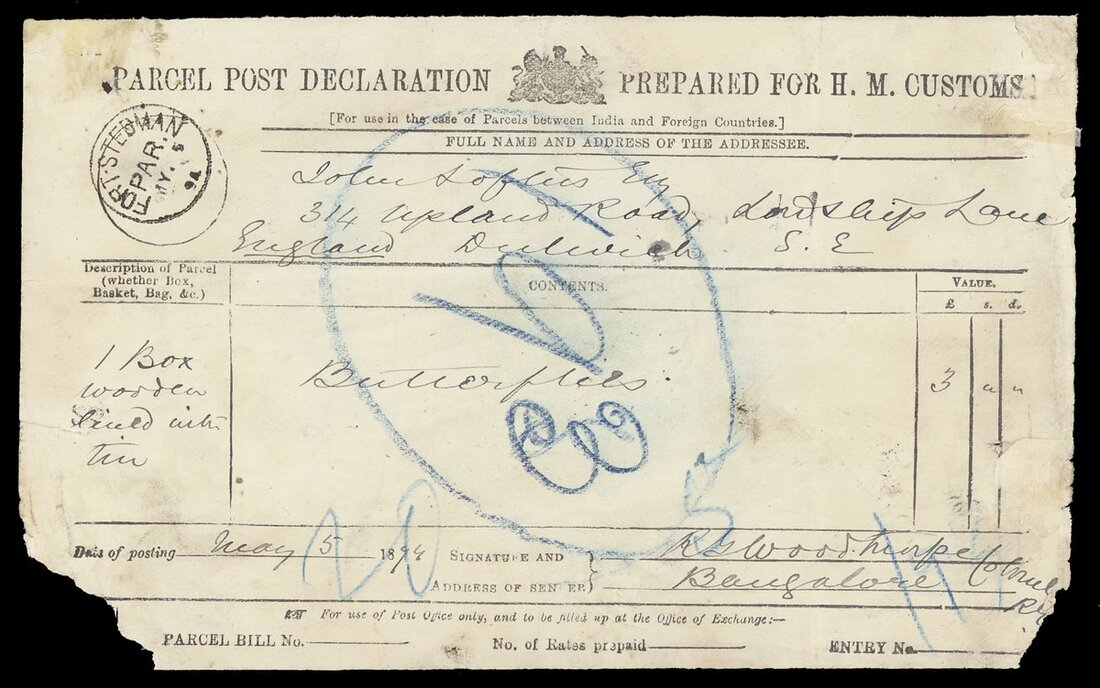 PARCEL POST DECLARATION PREPARED FOR H. M. CUSTOMS.
[For use in the case of Parcels between India and Foreign Countries.]
FULL NAME AND ADDRESS OF THE ADDRESSEE.
FORT-STEDMAN
PAR.
MY. 5
94
John Loftus Esq
314 Upland Road, Lordship Lane
England Dulwich S. E
Description of Parcel
(whether Box,
Basket, Bag, &c.)
CONTENTS.
VALUE.
£ s. d.
1 Box
wooden
lined with
tin
Butterflies.
3 " "
Date of posting May 5 1894
SIGNATURE AND
ADDRESS OF SENDER
R G Woodthorpe Colonel
Bangalore
For use of Post Office only, and to be filled up at the Office of Exchange:—
PARCEL BILL No. No. of Rates prepaid ENTRY No.